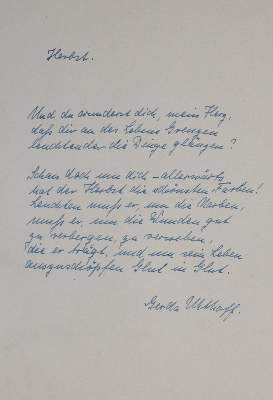 Herbst.
Und du wunderst dich, mein Herz,
daß dir an des Lebens Grenzen
leuchtender die Dinge glänzen?
Schau doch um dich – allerwärts
hat der Herbst die schönsten Farben!
Leuchten muß er, um die Narben,
muß er, um die Wunden gut
zu verbergen, zu verweben,
die er trägt, und um sein Leben
auszuschöpfen Glut in Glut.
Gerda Uthoff.